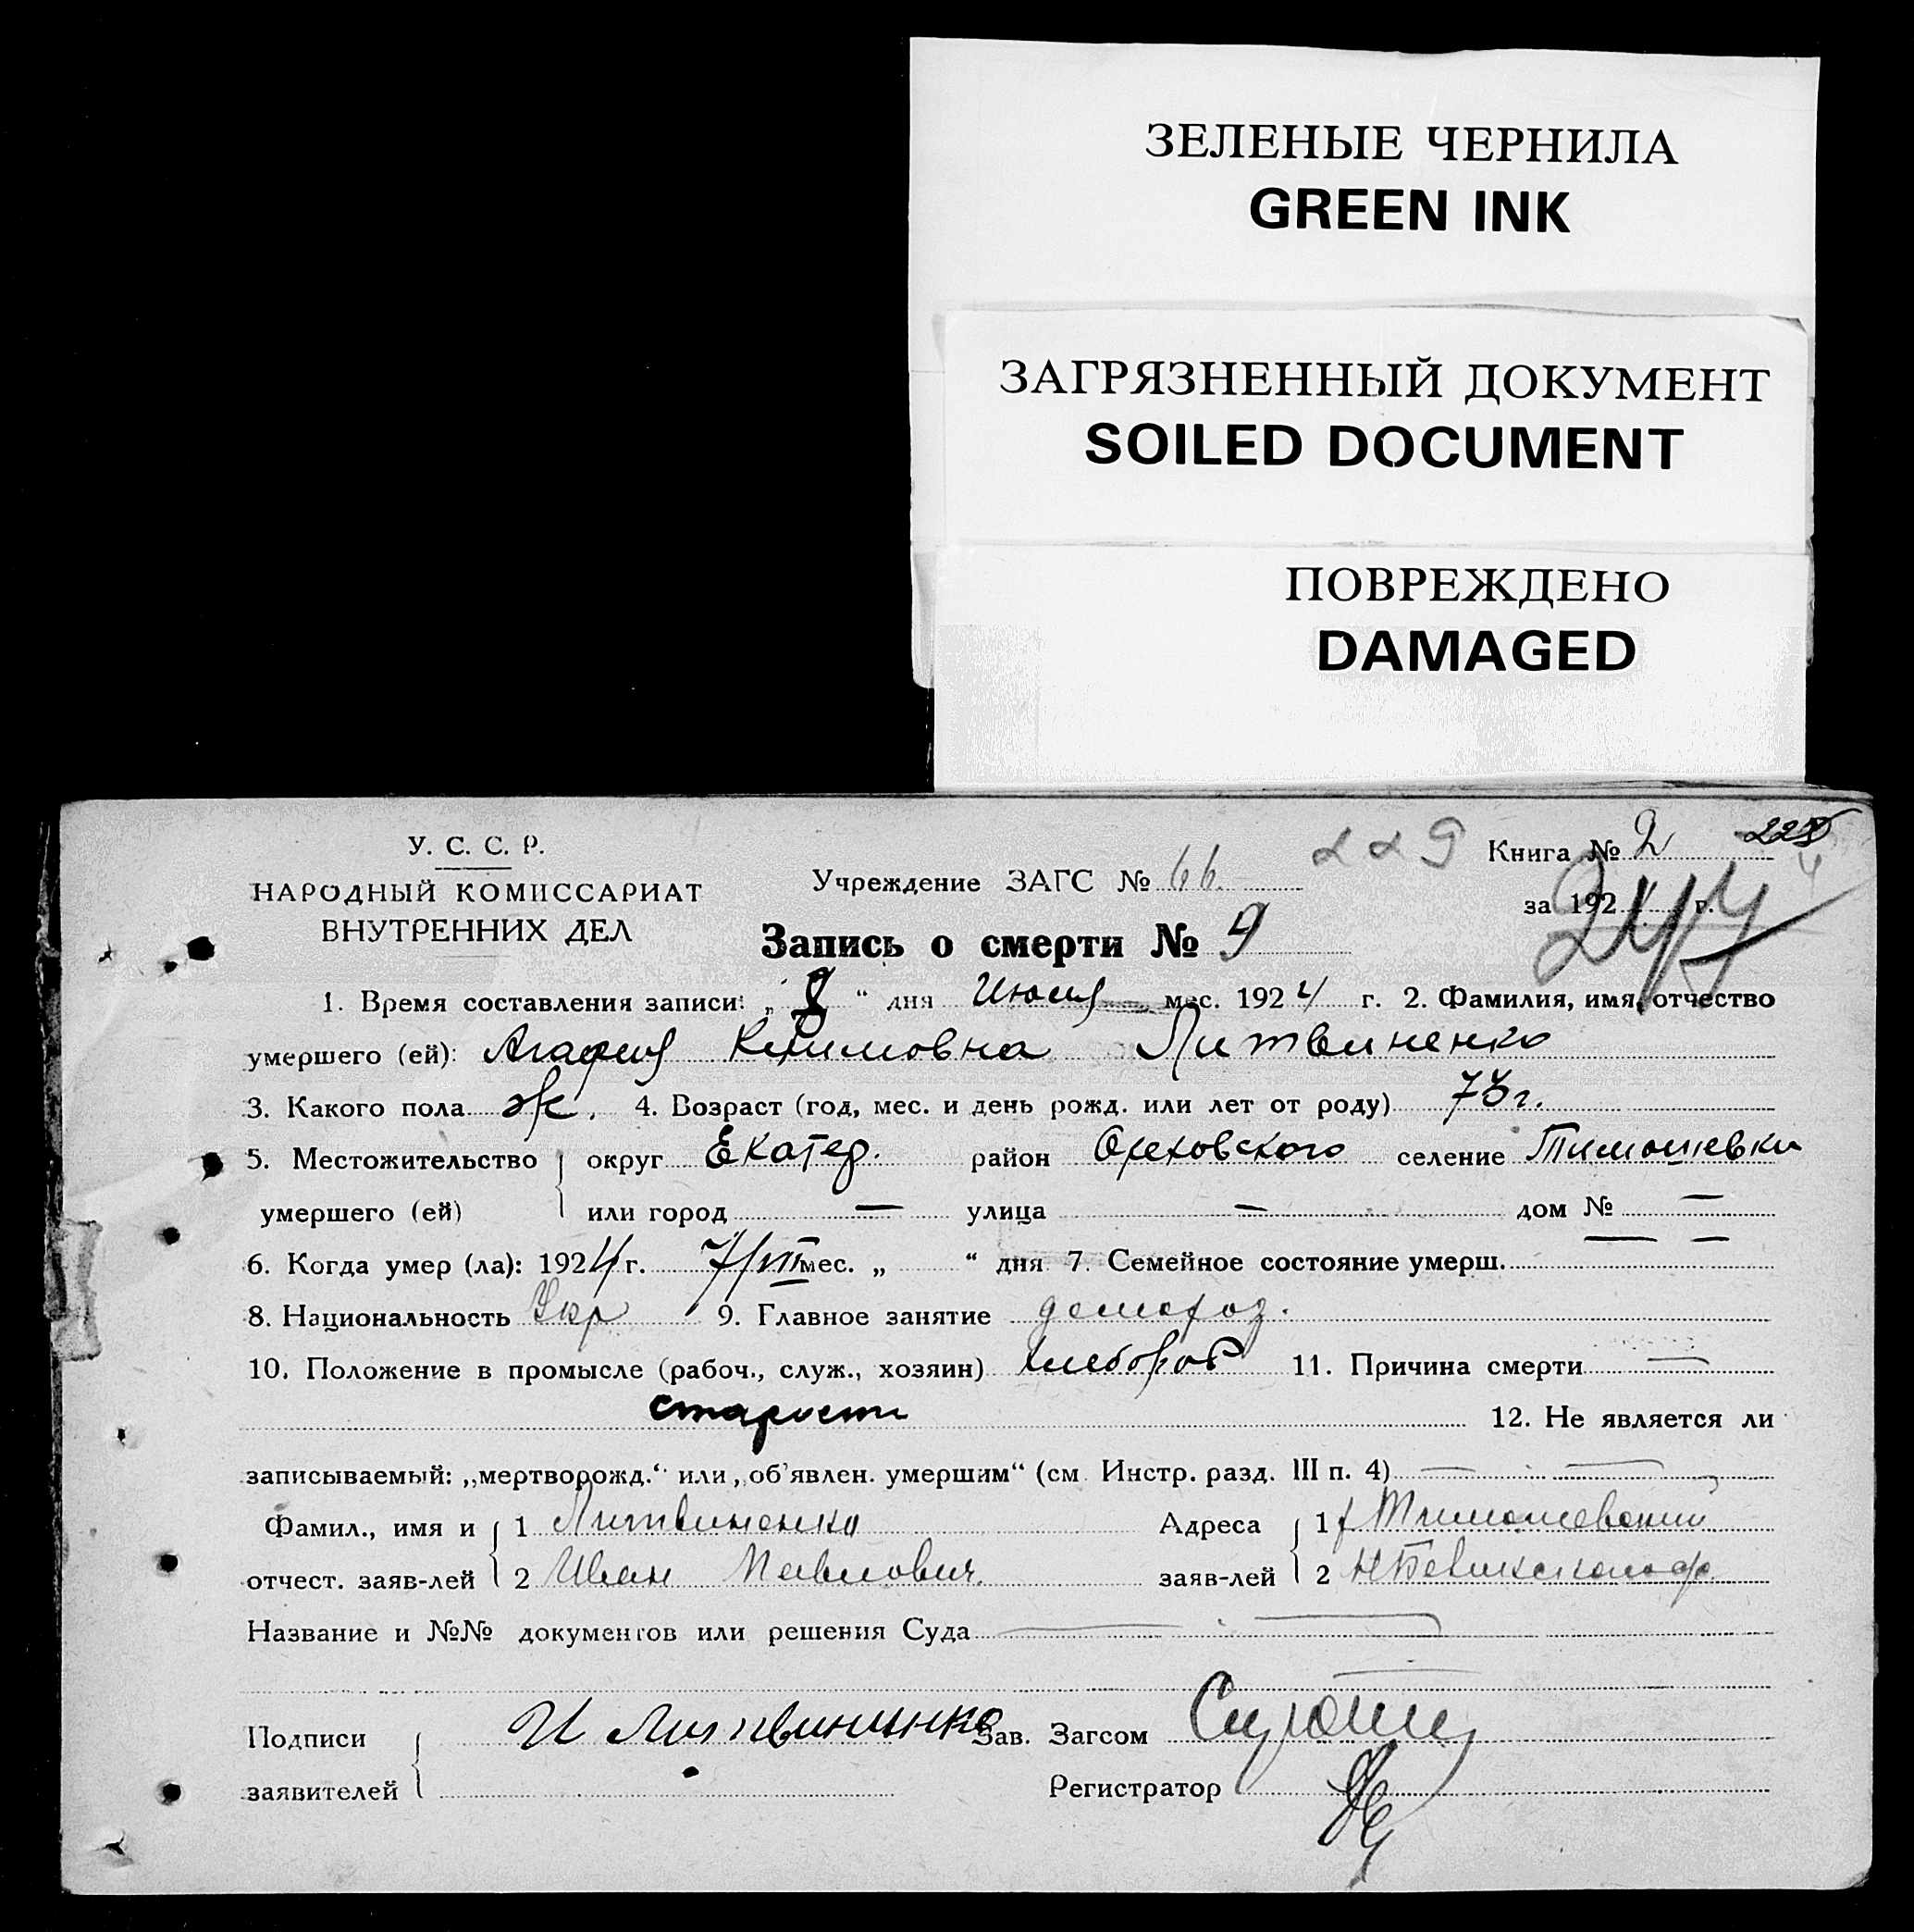 ЗЕЛЕНЫЕ ЧЕРНИЛА
GREEN INK
ЗАГРЯЗНЕННЫЙ ДОКУМЕНТ
SOILED DOCUMENT
ПОВРЕЖДЕНО
DAMAGED
У. С. С. Р.
НАРОДНЫЙ КОМИССАРИАТ
ВНУТРЕННИХ ДЕЛ
229
Книга № 2
Учреждение ЗАГС № 66.
за 192 г.
Запись о смерти № 9
1. Время составления записи: „ 8 “ дня Июля мес. 1924 г. 2. Фамилия, имя, отчество
умершего (ей): Агафия Климовна Литвиненко
3. Какого пола ж. 4. Возраст (год, мес. и день рожд. или лет от роду) 73 г.
5. Местожительство округ Екатер. район Ореховского селение Тимошевки
умершего (ей) или город — улица — дом № —
6. Когда умер (ла): 1924 г. 7/VII мес. „ “ дня 7. Семейное состояние умерш. — —
8. Национальность Укр 9. Главное занятие домохоз.
10. Положение в промысле (рабоч., служ., хозяин) хлебороб 11. Причина смерти —
старости 12. Не является ли
записываемый: „мертворожд.“ или „об’явлен. умершим“ (см. Инстр. разд. III п. 4) — —
Фамил., имя и 1 Литвиненко Адреса 1
отчест. заяв-лей 2 Иван Павлович. заяв-лей 2
Название и №№ документов или решения Суда —
Подписи И Литвиненко Зав. Загсом
заявителей Регистратор